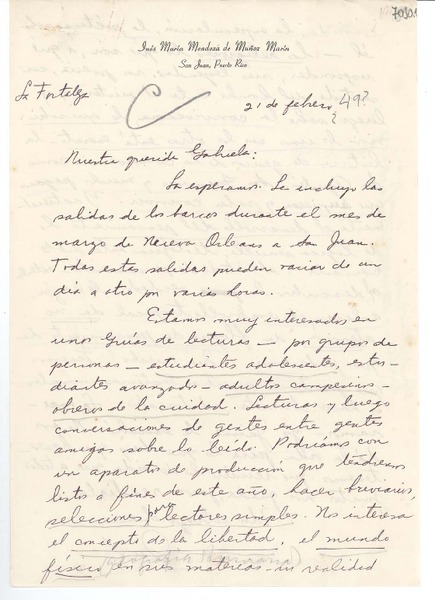 70301
Inés María Mendoza de Muñoz Marín
San Juan, Puerto Rico
La Fortaleza
21 de febrero 49?
?
Nuestra querida Gabriela:
La esperamos. Le incluyo las
salidas de los barcos durante el mes de
marzo de Nueva Orleans a San Juan.
Todas estas salidas pueden variar de un
día a otro por varias horas.
Estamos muy interesados en
unos Guías de lecturas — por grupos de
personas — estudiantes adolescentes, estu-
diantes avanzados — adultos campesinos -
obreros de la cuidad. Lecturas y luego
conversaciones de gentes entre gentes
amigas sobre lo leído. Podríamos con
un aparato de producción que tendremos
listo a fines de este año, hacer breviarios,
selecciones para lectores simples. Nos interesa
el concepto de la libertad, el mundo
físico en sus materias - su realidad